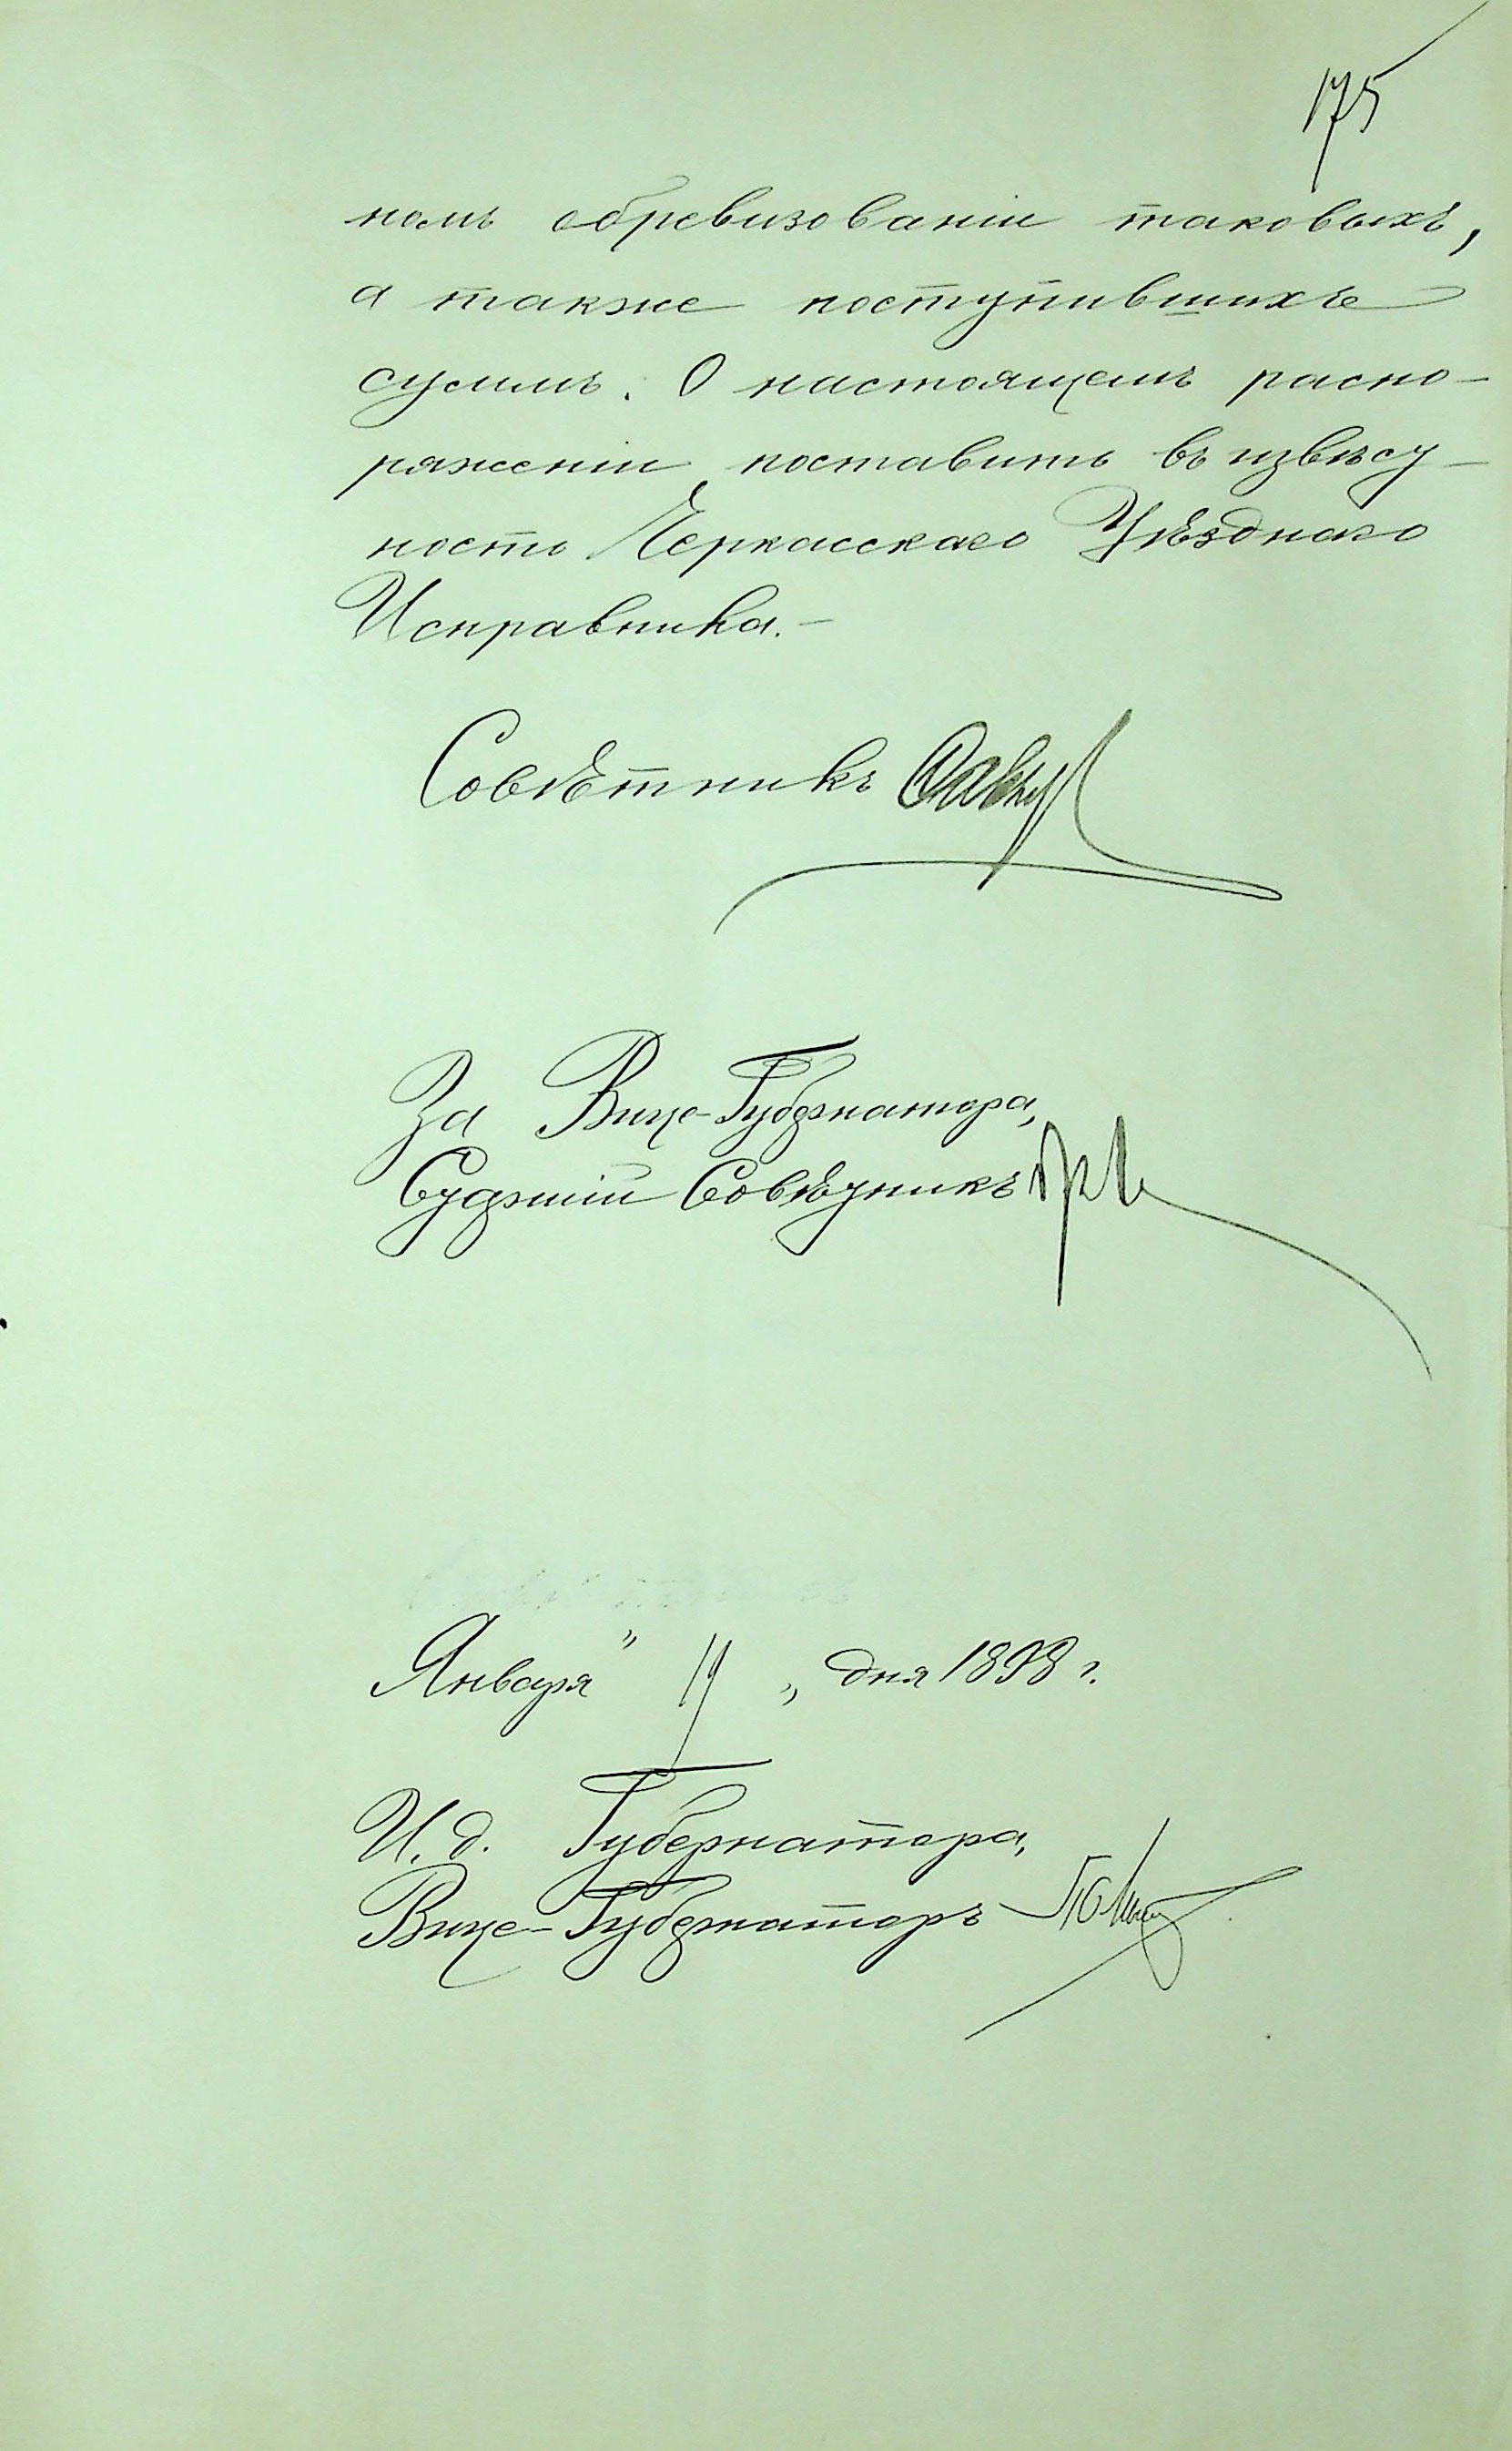 175
номъ обревизованіи таковыхъ,
а также поступившихъ
суммъ. О настоящемъ распо-
ряженіи поставить въ извѣст-
ность Черкасскаго Уѣзднаго
Исправника.-
Совѣтникъ
За Вице-Губернатора,
Старшій Совѣтникъ
Января " 19 " дня 1898 г.
И. д. Губернатора,
Вице-Губернаторъ